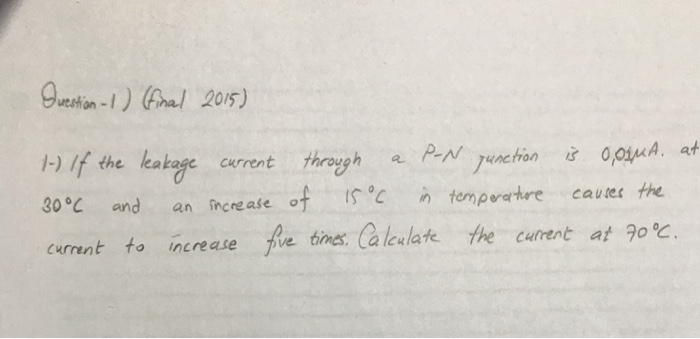 Question-1) (final 2015)
1-) If the leakage current through a P-N junction is 0,01μA. at
30°C and an increase of 15°C in temperature causes the
current to increase five times. Calculate the current at 70°C.